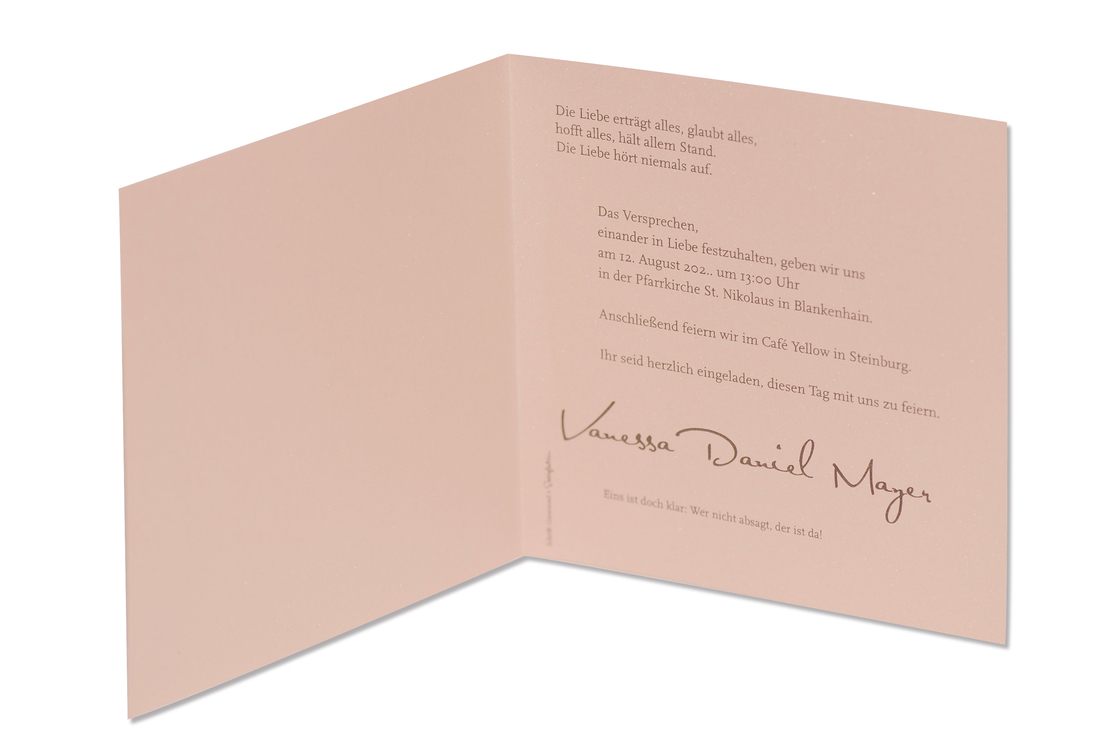 Die Liebe erträgt alles, glaubt alles,
hofft alles, hält allem Stand.
Die Liebe hört niemals auf.
Das Versprechen,
einander in Liebe festzuhalten, geben wir uns
am 12. August 202.. um 13:00 Uhr
in der Pfarrkirche St. Nikolaus in Blankenhain.
Anschließend feiern wir im Café Yellow in Steinburg.
Ihr seid herzlich eingeladen, diesen Tag mit uns zu feiern.
Vanessa Daniel Mayer
Eins ist doch klar: Wer nicht absagt, der ist da!